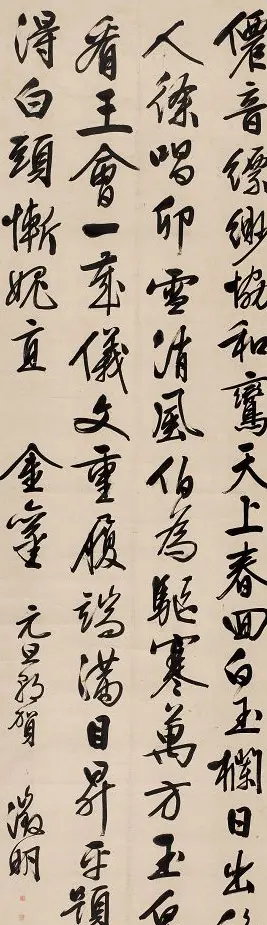 僊音縹緲恊和鸞天上春回白玉欄日出
人徐唱卯雪消風伯為驅寒萬方玉帛
看王會一歲儀文重履端滿目昇平題
得白頭慚媿直 金鑾 元旦朝賀 徵明